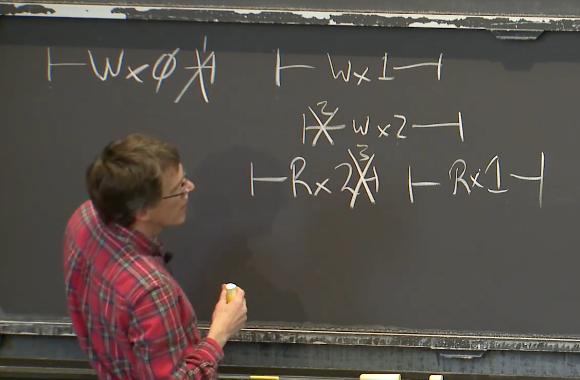 |-Wx0̸-| 1 |-Wx1-|
2 |-Wx2-|
|-Rx2-| 3 |-Rx1-|